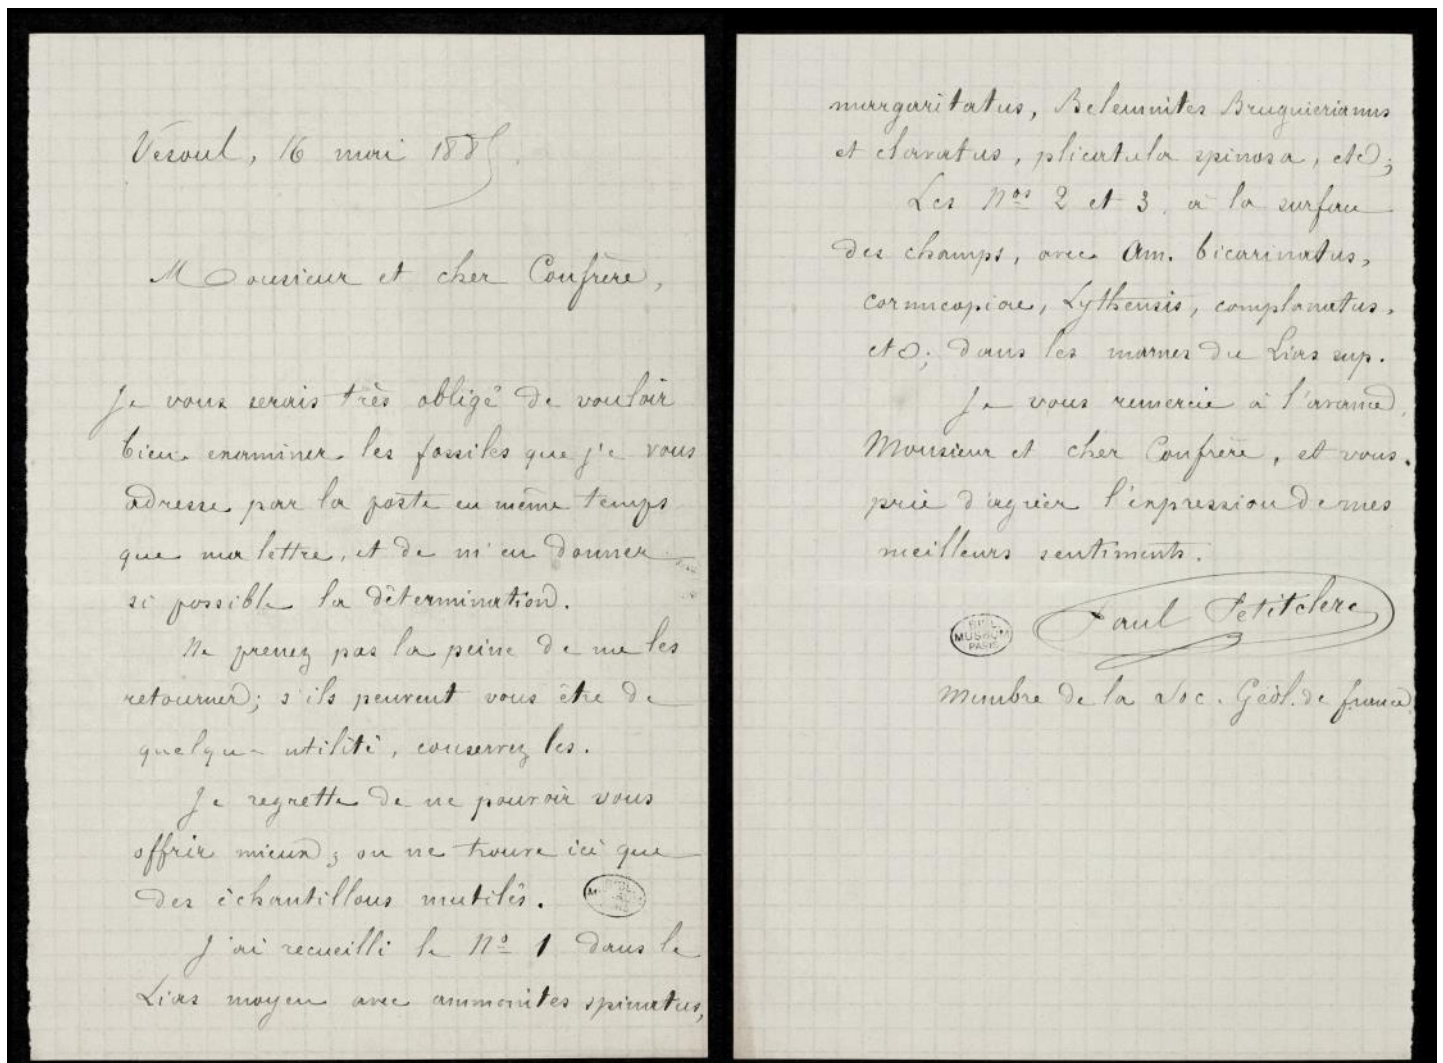 Vesoul, 16 mai 1885.
Monsieur et cher Confrère,
Je vous serais très obligé de vouloir
bien examiner les fossiles que je vous
adresse par la poste en même temps
que ma lettre, et de m'en donner
si possible la détermination.
Ne prenez pas la peine de me les
retourner; s'ils peuvent vous être de
quelque utilité, conservez les.
Je regrette de ne pouvoir vous
offrir mieux; on ne trouve ici que
des échantillons mutilés.
J'ai recueilli le Nº 1 dans le
Lias moyen avec ammonites spinatus,
margaritatus, Belemnites Bruguierianus
et clavatus, plicatula spinosa, etc;
Les Nos 2 et 3, à la surface
des champs, avec Am. bicarinatus,
cornucopiae, Lythensis, complanatus,
etc; dans les marnes du Lias sup.
Je vous remercie à l'avance,
Monsieur et cher Confrère, et vous
prie d'agréer l'expression de mes
meilleurs sentiments.
Paul Petitclerc
BIBL.
MUSEUM
PARIS
Membre de la Soc. Géol. de france